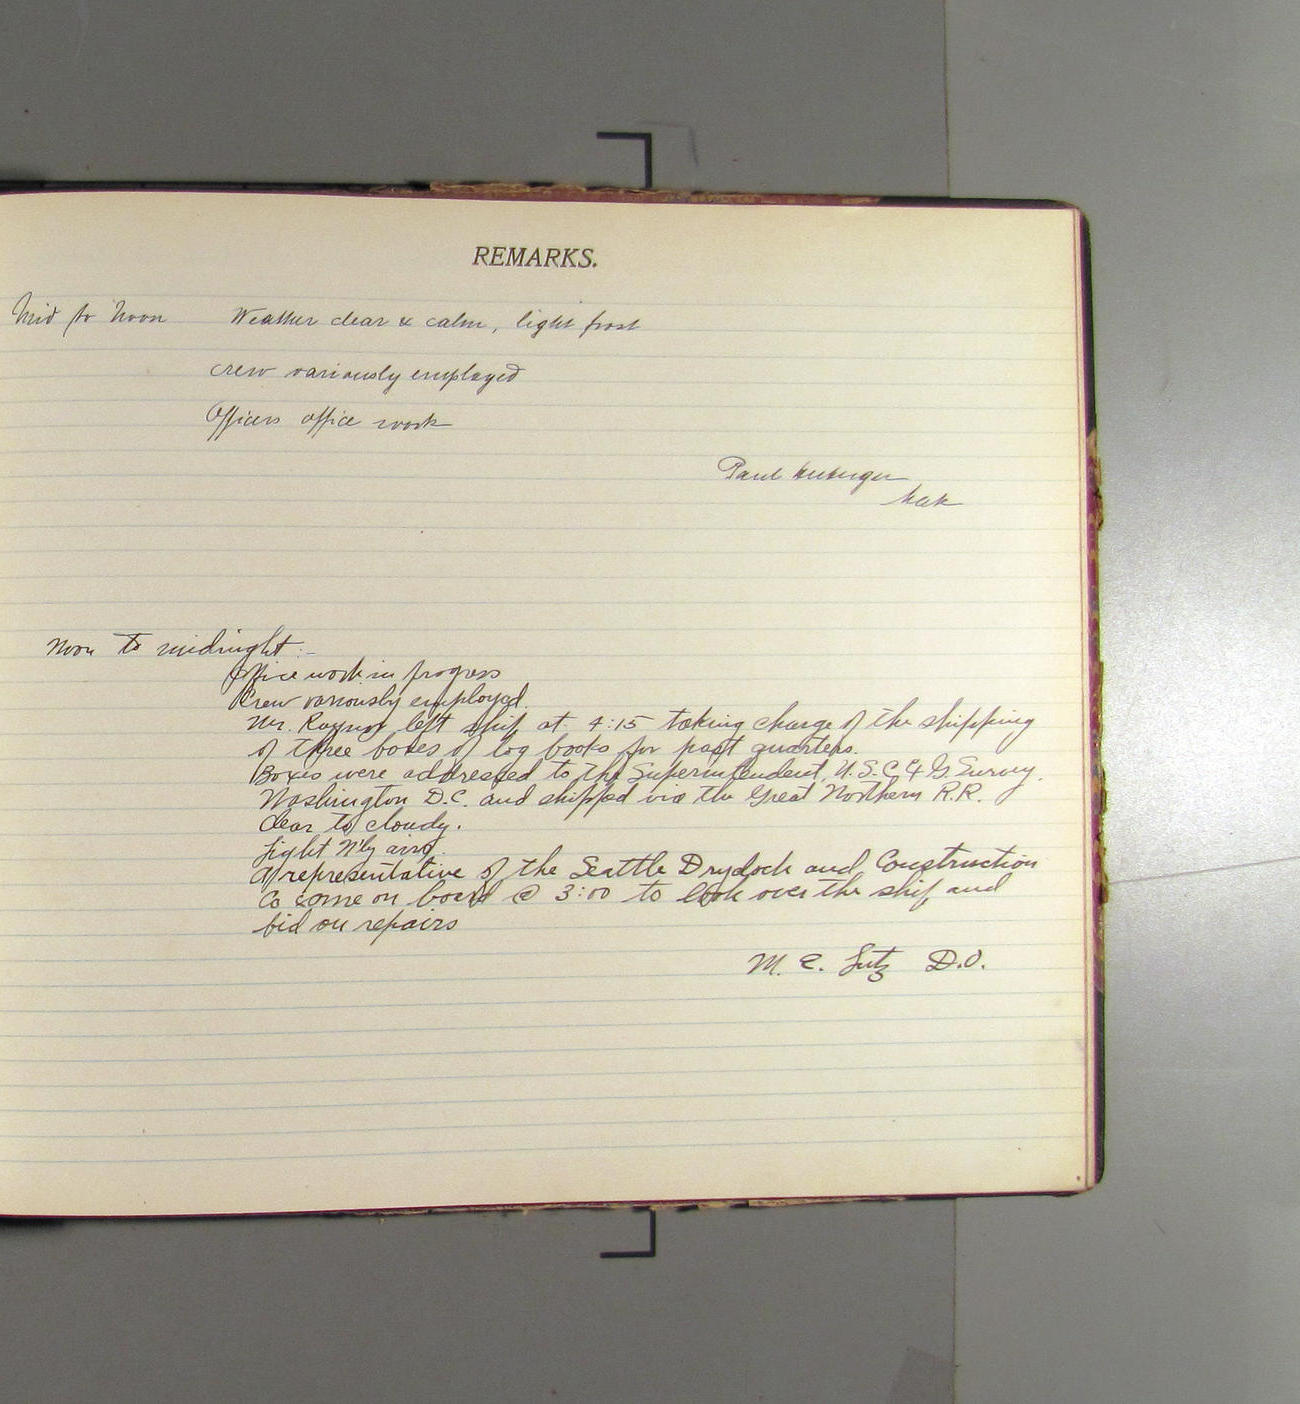 REMARKS.
Mid to Noon Weather clear & calm, light frost
crew variously employed
Officers office work
Paul
Noon to midnight:-
Office work in progress
Crew variously employed.
Mr. Raynor left ship at 4:15 taking charge of the shipping
of three boxes of log books for past quarters.
Boxes were addressed to the Superintendent, U.S.C. & G. Survey,
Washington D.C. and shipped via the Great Northern R.R.
Clear to cloudy.
Light N'ly airs.
A representative of the Seattle Drydock and Construction
Co come on board @ 3:00 to look over the ship and
bid on repairs
M. C. Lutz D.O.